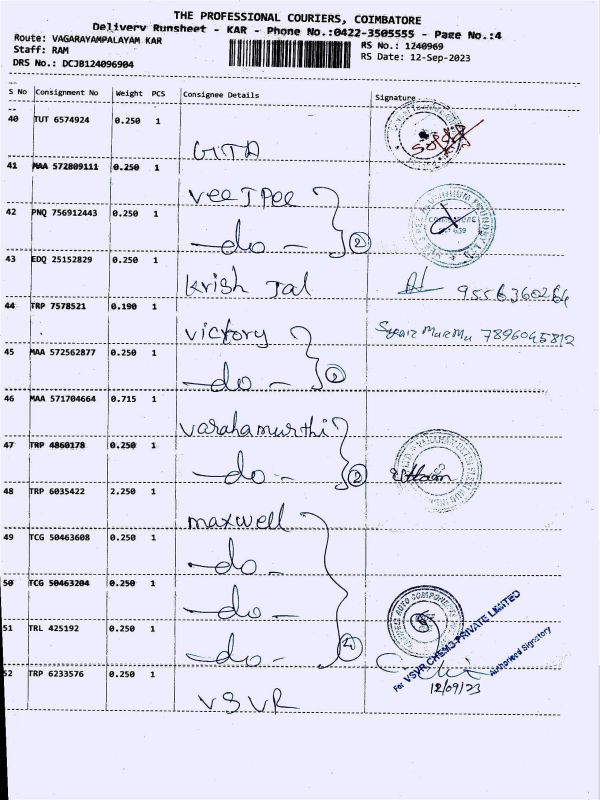 THE PROFESSIONAL COURIERS, COIMBATORE
Delivery Runsheet - KAR - Phone No.:0422-3505555 - Page No.:4
Route: VAGARAYAMPALAYAM KAR
RS No.: 1240969
Staff: RAM
RS Date: 12-Sep-2023
DRS No.: DCJB124096904
S No Consignment No Weight PCS Consignee Details Signature
40 TUT 6574924 0.250 1
GITA
41 MAA 572809111 0.250 1
Vee Jpee
42 PNQ 756912443 0.250 1
-do- 2
43 EDQ 25152829 0.250 1
Krish Tal 9556360264
44 TRP 7578521 0.190 1
victory MurMu 7896045812
45 MAA 572562877 0.250 1
-do- 2
46 MAA 571704664 0.715 1
varahamurthi
47 TRP 4860178 0.250 1
-do- 2
48 TRP 6035422 2.250 1
maxwell
49 TCG 50463608 0.250 1
-do-
50 TCG 50463204 0.250 1
-do-
51 TRL 425192 0.250 1
-do- 4
For VSVR CHEMS PRIVATE LIMITED
Authorised Signatory
12/09/23
52 TRP 6233576 0.250 1
VSVR